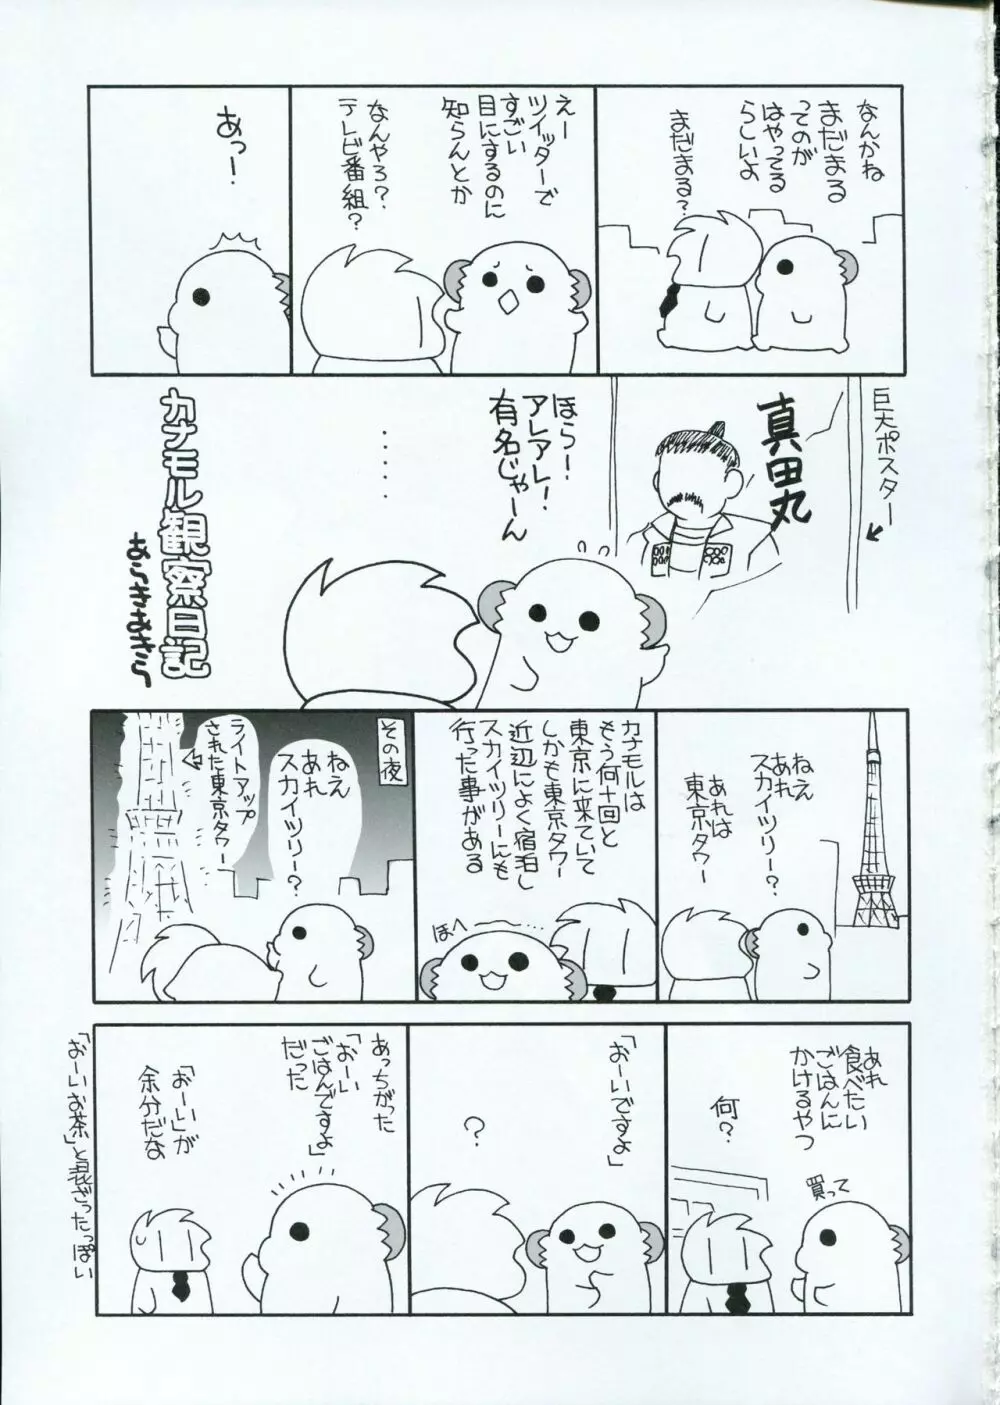 なんかね
まだまる
ってのが
はやってる
らしいよ
まだまる?
えー
ツイッターで
すごい
目にするのに
知らんとか
なんやろ?
テレビ番組?
あっ!
巨大ポスター
真田丸
ほら!
アレアレ!
有名じゃーん
・・・・・
カナモル観察日記
あらきあきら
ねえ
あれ
スカイツリー?
あれは
東京タワー
カナモルは
もう何十回と
東京に来ていて
しかも東京タワー
近辺によく宿泊し
スカイツリーにも
行った事がある
ほへ〜〜…
その夜
ねえ
あれ
スカイツリー?
ライトアップ
された東京タワー
あれ
食べたい
ごはんに
かけるやつ
買って
何?
「おーいですよ」
?
あっちがった
「おーい
ごはんですよ」
だった
「おーい」が
余分だな
「おーいお茶」と混ざったっぽい